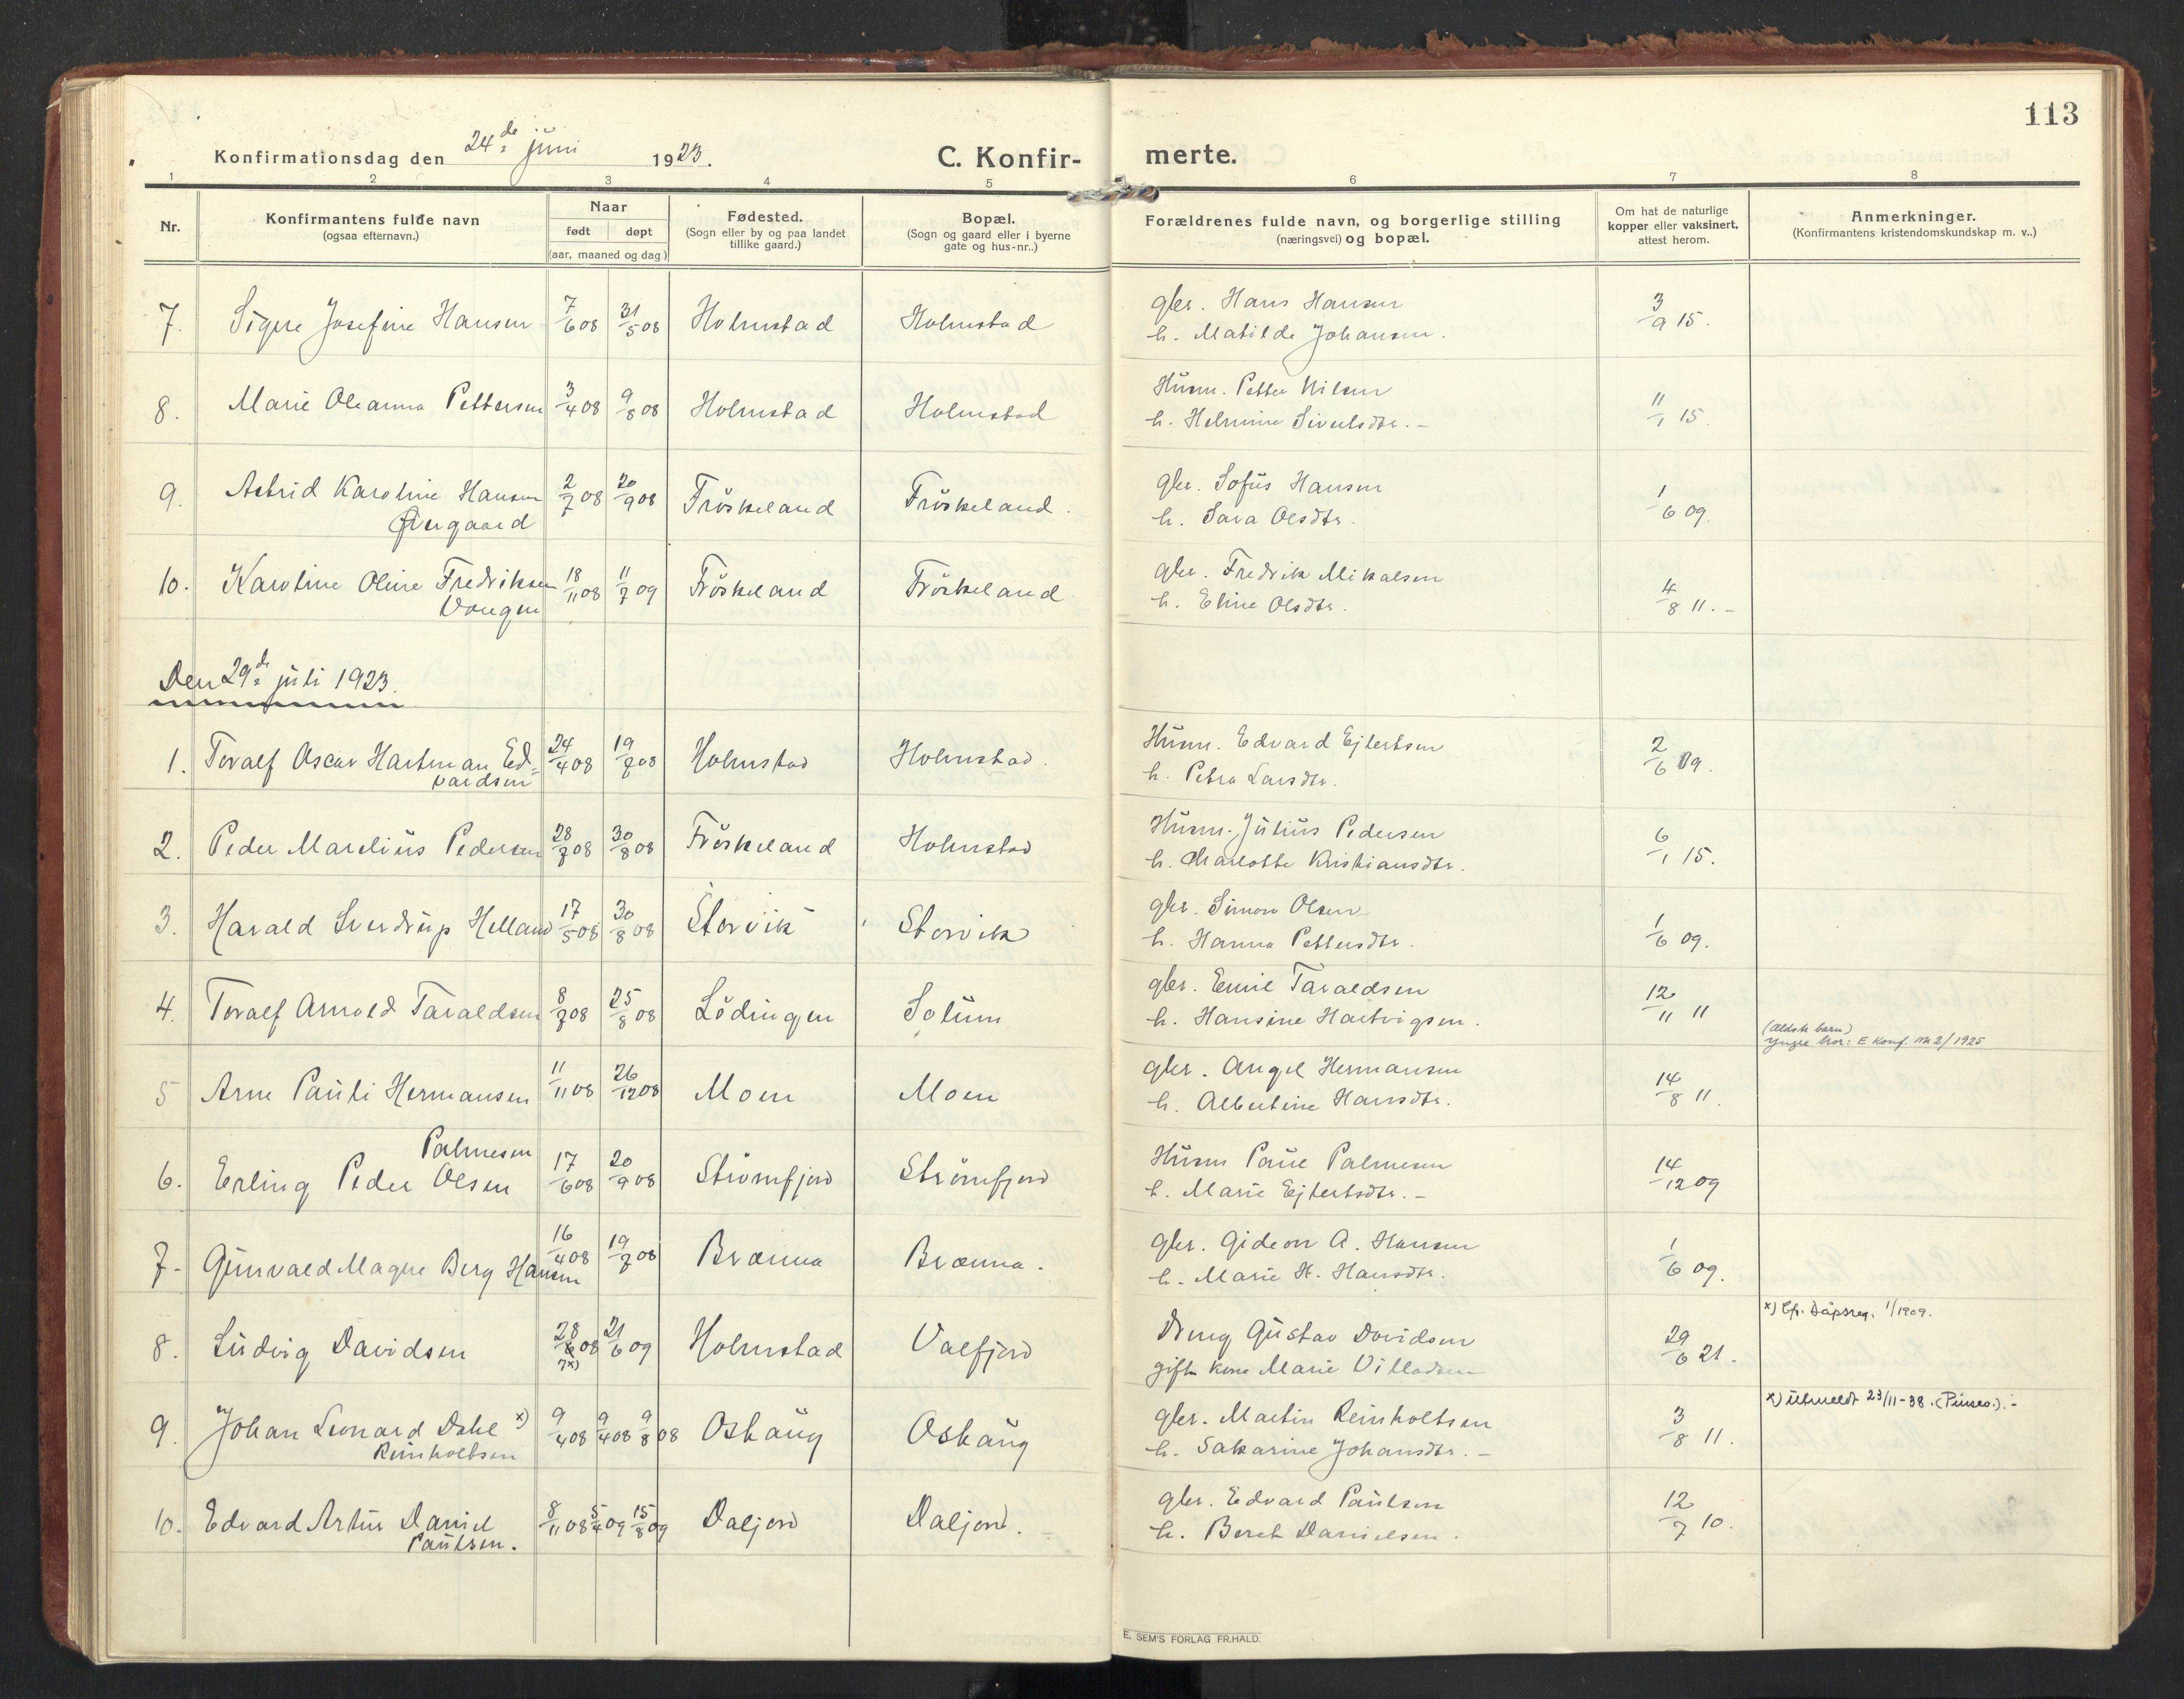 113
Konfirmationsdag den 24de juni 1923. C. Konfir- merte.
1 2 3 4 5 6 7 8
Nr. Konfirmantens fulde navn (ogsaa efternavn.) Naar født døpt (aar, maaned og dag) Fødested. (Sogn eller by og paa landet tillike gaard.) Bopæl. (Sogn og gaard eller i byerne gate og hus-nr..) Forældrenes fulde navn, og borgerlige stilling (næringsvei) og bopæl. Om hat de naturlige kopper eller vaksinert, attest herom. Anmerkninger. (Konfirmantens kristendomskundskap m. v..)
7. Signe Josefine Hansen 7/6 08 31/5 08 Holmstad Holmstad gbr. Hans Hansen 3/9 15.
h. Matilde Johansen.
8. Marie Oleanna Pettersen 3/4 08 9/8 08 Holmstad Holmstad Husm. Petter Nilsen 11/1 15.
h. Helmine Sivertsdtr. -
9. Astrid Karoline Hansen 2/7 08 20/9 08 Frøskeland Frøskeland. gbr. Sofus Hansen 1/6 09.
Øvergaard h. Sara Olsdtr.
10. Karoline Oline Fredriksen 18/11 08 11/7 09 Frøskeland Frøskeland gbr. Fredrik Mikalsen 4/8 11. -
Vangen h. Eline Olsdtr.
Den 29de juli 1923.
1. Toralf Oscar Hartman Ed- 24/4 08 19/7 08 Holmstad Holmstad. Husm. Edvard Ejlertsen 2/6 09.
vardsen h. Petra Larsdtr.
2. Peder Marelius Pedersen 28/7 08 30/8 08 Frøskeland Holmstad Husm. Julius Pedersen 6/1 15.
h. Charlotte Kristiansdtr.
3. Harald Sverdrup Helland 17/5 08 30/8 08 Storvik Storvik gbr. Simon Olsen 1/6 09.
h. Hanna Pettersdtr.
4. Toralf Arnold Taraldsen 8/7 08 25/8 08 Lødingen Solum gbr. Emil Taraldsen 12/11 11
h. Hansine Hartvigsen.
(Eldste barn)
Yngre bror: E Konf. nr 2/1925
5 Arne Pauli Hermansen 11/11 08 26/12 08 Moen Moen gbr. Angel Hermansen 14/8 11.
h. Albertine Hansdtr.
Palmesen
6. Erling Peder Olsen 17/6 08 20/9 08 Strømfjord Strømfjord Husm Paul Palmesen 14/12 09
h. Marie Ejlertsdtr. -
7- Gunvald Magne Berg Hansen 16/4 08 19/7 08 Brænna Brænna. gbr. Gideon A. Hansen 1/6 09.
h. Marie H. Hansdtr.
x) Cfr. Dåpsreg. 1/1909.
8. Ludvig Davidsen 28/6 08 21/6 09 Holmstad Valfjord Dreng Gustav Davidsen 29/6 21.
7x) gift kone Marie Villadsen
x) Utmeldt 23/11-38. (Pinsev.). -
9. Johan Leonard Dahl x) 9/4 08 9/4 08 9/8 08 Oshaug Oshaug gbr. Martin Reinholtsen 3/8 11.
Reinholtsen h. Sakarine Johansdtr. -
10. Edvard Artur Daniel 8/11 08 5/4 09 15/8 09 Daljord Daljord. gbr. Edvard Paulsen 12/7 10.
Paulsen. h. Beret Danielsen.
E. SEM'S FORLAG FR.HALD.